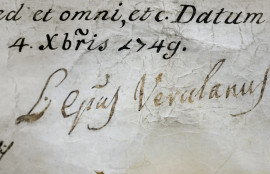 ed et omni, etc. Datum
4. Xbris 1749.
L Epus Verulanus